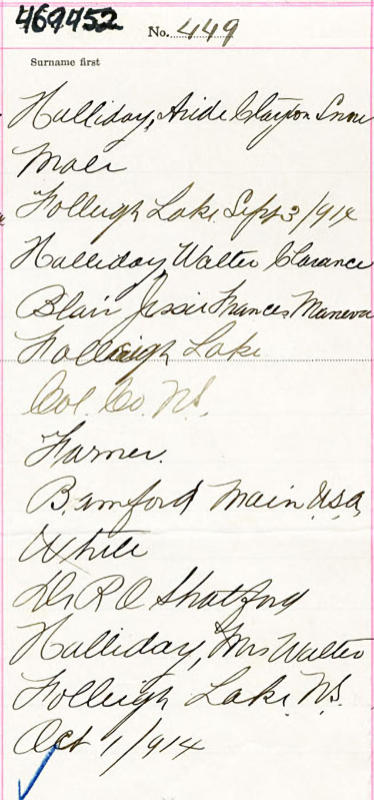 469452
No. 449
Surname first
Halliday, Aride Clayton Snow
Male
Folleigh Lake Sept 3/914
Halliday, Walter Clarance
Blair Jessie Frances Maneva
Folleigh Lake
Col. Co. N.S.
Farmer.
Bamford Main U.S.A.
White
Dr R O Shatford
Halliday, Mrs Walter
Folleigh Lake N.S.
Oct 1/914